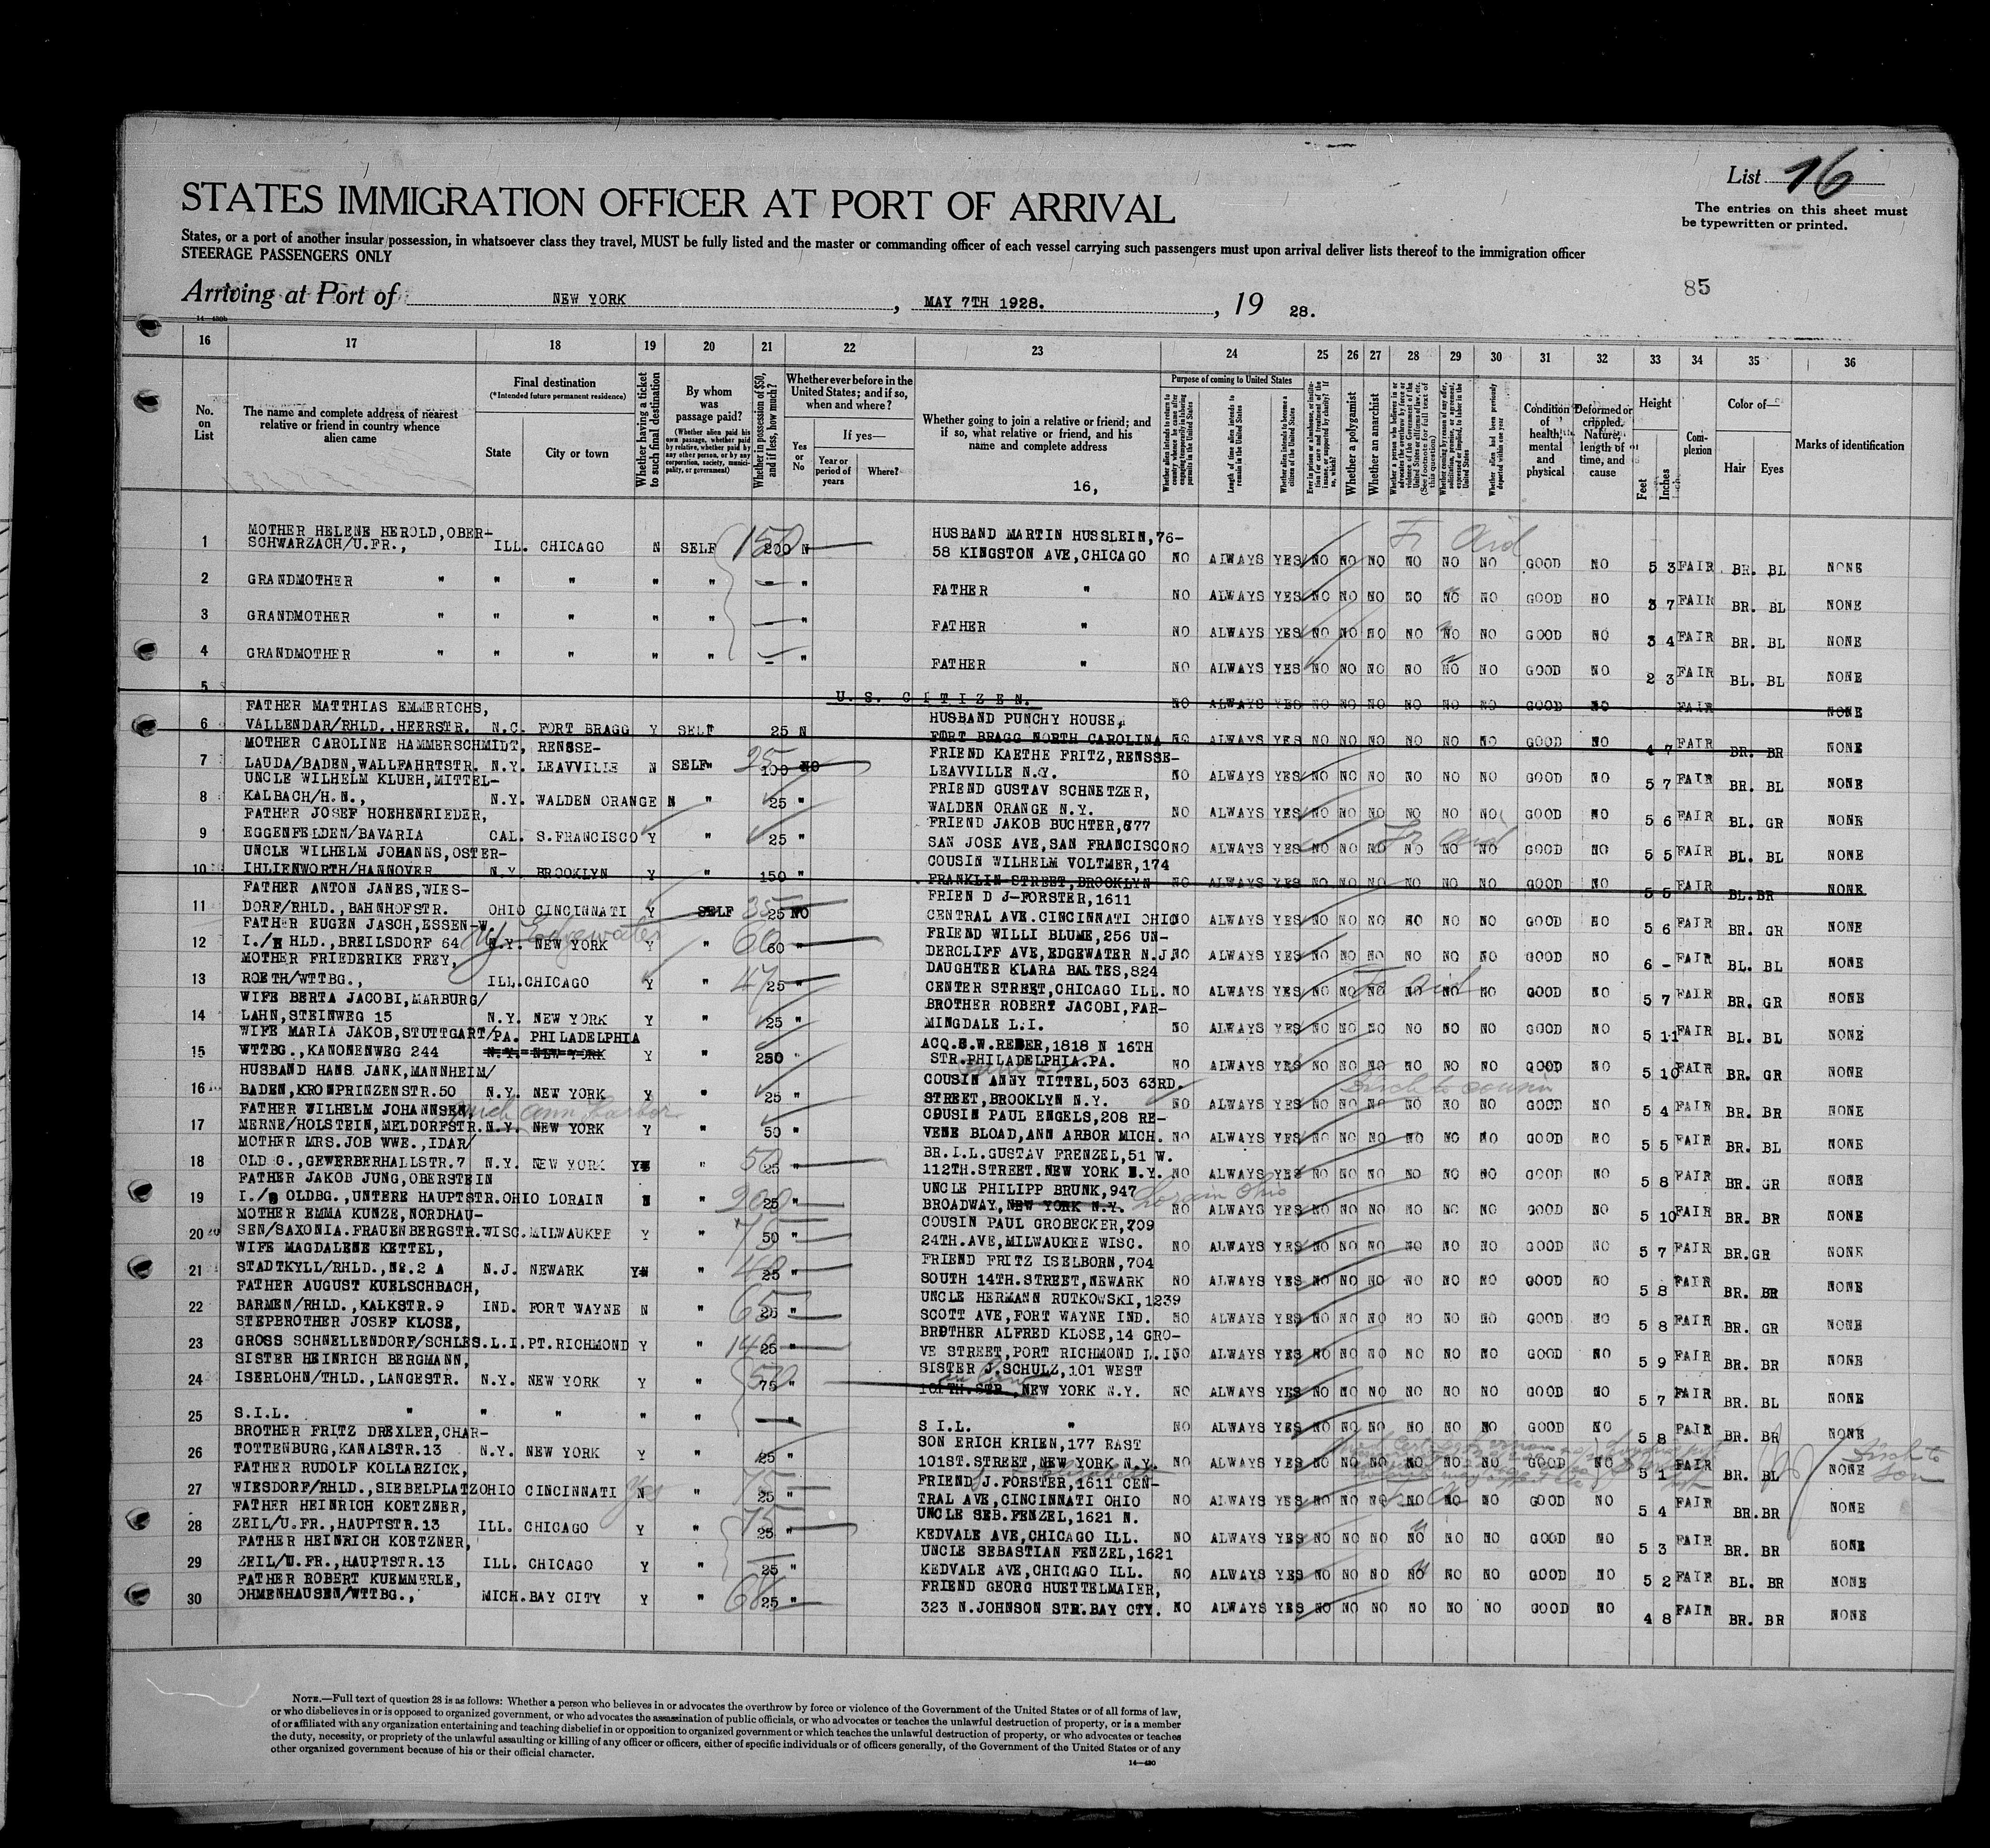 List 16
The entries on this sheet must
be typewritten or printed.
STATES IMMIGRATION OFFICER AT PORT OF ARRIVAL
States, or a port of another insular possession, in whatsoever class they travel, MUST be fully listed and the master or commanding officer of each vessel carrying such passengers must upon arrival deliver lists thereof to the immigration officer
STEERAGE PASSENGERS ONLY
85
Arriving at Port of NEW YORK, MAY 7TH 1928., 19 28.
16 17 18 19 20 21 22 23 24 25 26 27 28 29 30 31 32 33 34 35 36
No. on List
The name and complete address of nearest relative or friend in country whence alien came
Final destination (*Intended future permanent residence)
State
City or town
Whether having a ticket to such final destination
By whom was passage paid?
(Whether alien paid his own passage, whether paid by relative, whether paid by any other person, or by any corporation, society, municipality, or government)
Whether in possession of $50, and if less, how much?
Whether ever before in the United States; and if so, when and where?
Yes or No
If yes—
Year or period of years
Where?
Whether going to join a relative or friend; and if so, what relative or friend, and his name and complete address
16,
Purpose of coming to United States
Length of time alien intends to remain in the United States
Whether alien intends to become a citizen of the United States
Whether a polygamist
Whether an anarchist
Condition of health, mental and physical
Deformed or crippled. Nature, length of time, and cause
Height
Feet
Inches
Complexion
Color of—
Hair
Eyes
Marks of identification
MOTHER HELENE HEROLD,OBER-
1 SCHWARZACH/U.FR., ILL. CHICAGO N SELF 150 200 N HUSBAND MARTIN HUSSLEIN,76-
58 KINGSTON AVE,CHICAGO NO ALWAYS YES NO NO NO NO NO NO GOOD NO 5 3 FAIR BR. BL NONE
2 GRANDMOTHER " " " " " — " FATHER " NO ALWAYS YES NO NO NO NO NO NO GOOD NO 3 7 FAIR BR. BL NONE
3 GRANDMOTHER " " " " " — " FATHER " NO ALWAYS YES NO NO NO NO NO NO GOOD NO 3 4 FAIR BR. BL NONE
4 GRANDMOTHER " " " " " — " FATHER " NO ALWAYS YES NO NO NO NO NO NO GOOD NO 2 3 FAIR BL. BL NONE
5 U.S. CITIZEN. NO ALWAYS YES NO NO NO NO NO NO GOOD NO FAIR NONE
FATHER MATTHIAS EMMERICHS, HUSBAND PUNCHY HOUSE,
6 VALLENDAR/RHLD.,HEERSTR. N.C. FORT BRAGG Y SELF 25 N FORT BRAGG NORTH CAROLINA NO ALWAYS YES NO NO NO NO NO NO GOOD NO 4 7 FAIR BR. BR NONE
MOTHER CAROLINE HAMMERSCHMIDT, RENSSE- FRIEND KAETHE FRITZ,RENSSE-
7 LAUDA/BADEN,WALLFAHRTSTR. N.Y. LEAVVILLE N SELF" 25 100 NO LEAVVILLE N.Y. NO ALWAYS YES NO NO NO NO NO NO GOOD NO 5 7 FAIR BR. BL NONE
UNCLE WILHELM KLUEH,MITTEL- FRIEND GUSTAV SCHNETZER,
8 KALBACH/H.N., N.Y. WALDEN ORANGE N " 25 " WALDEN ORANGE N.Y. NO ALWAYS YES NO NO NO NO NO NO GOOD NO 5 6 FAIR BL. GR NONE
FATHER JOSEF HOEHENRIEDER, FRIEND JAKOB BUCHTER,677
9 EGGENFELDEN/BAVARIA CAL. S.FRANCISCO Y " 25 " SAN JOSE AVE,SAN FRANCISCO NO ALWAYS YES NO NO NO NO NO NO GOOD NO 5 5 FAIR BL. BL NONE
UNCLE WILHELM JOHANNS,OSTER- COUSIN WILHELM VOLTMER,174
10 IHLIENWORTH/HANNOVER N.Y. BROOKLYN Y " 150 " FRANKLIN STREET,BROOKLYN NO ALWAYS YES NO NO NO NO NO NO GOOD NO 5 5 FAIR BL.BR NONE
FATHER ANTON JANES,WIES- FRIEN D J-FORSTER,1611
11 DORF/RHLD.,BAHNHOFSTR. OHIO CINCINNATI Y SELF 35 25 NO CENTRAL AVE.CINCINNATI OHIO NO ALWAYS YES NO NO NO NO NO NO GOOD NO 5 6 FAIR BR. GR NONE
FATHER EUGEN JASCH,ESSEN-W. NJ Edgewater FRIEND WILLI BLUME,256 UN-
12 I./R HLD.,BREILSDORF 64 N.Y. NEW YORK Y " 60 60 " DERCLIFF AVE,EDGEWATER N.J. NO ALWAYS YES NO NO NO NO NO NO GOOD NO 6 - FAIR BL. BL NONE
MOTHER FRIEDERIKE FREY, DAUGHTER KLARA BALTES,824
13 ROETH/WTTBG., ILL.CHICAGO Y " 47 25 " CENTER STREET,CHICAGO ILL. NO ALWAYS YES NO NO NO NO NO NO GOOD NO 5 7 FAIR BR. GR NONE
WIFE BERTA JACOBI,MARBURG/ BROTHER ROBERT JACOBI,FAR-
14 LAHN,STEINWEG 15 N.Y. NEW YORK Y " 25 " MINGDALE L.I. NO ALWAYS YES NO NO NO NO NO NO GOOD NO 5 11 FAIR BL. BL NONE
WIFE MARIA JAKOB,STUTTGART/PA. PHILADELPHIA ACQ.G.W.REDER,1818 N 16TH
15 WTTBG.,KANONENWEG 244 N.Y. NEW YORK Y " 250 " STR.PHILADELPHIA.PA. NO ALWAYS YES NO NO NO NO NO NO GOOD NO 5 10 FAIR BR. GR NONE
HUSBAND HANS JANK,MANNHEIM/ COUSIN ANNY TITTEL,503 63RD.
16 BADEN,KRONPRINZENSTR.50 N.Y. NEW YORK Y " 25 " STREET,BROOKLYN N.Y. NO ALWAYS YES NO NO NO NO NO NO GOOD NO 5 4 FAIR BR. BR NONE
FATHER WILHELM JOHANNSEN, Mich Ann Harbor COUSIN PAUL ENGELS,208 RE-
17 MERNE/HOLSTEIN,MELDORFSTR.N.Y. NEW YORK Y " 50 " VENE BLOAD,ANN ARBOR MICH. NO ALWAYS YES NO NO NO NO NO NO GOOD NO 5 5 FAIR BR. BL NONE
MOTHER MRS.JOB WWE.,IDAR/ BR.I.L.GUSTAV FRENZEL,51 W.
18 OLD G.,GEWERBERHALLSTR.7 N.Y. NEW YORK Y " 50 25 " 112TH.STREET.NEW YORK N.Y. NO ALWAYS YES NO NO NO NO NO NO GOOD NO 5 8 FAIR BR. GR NONE
FATHER JAKOB JUNG,OBERSTEIN UNCLE PHILIPP BRUNK,947 Lorain Ohio
19 I./ OLDBG.,UNTERE HAUPTSTR.OHIO LORAIN N " 200 25 " BROADWAY,NEW YORK N.Y. NO ALWAYS YES NO NO NO NO NO NO GOOD NO 5 10 FAIR BR. BR NONE
MOTHER EMMA KUNZE,NORDHAU- COUSIN PAUL GROBECKER,709
20 SEN/SAXONIA.FRAUENBERGSTR.WISC.MILWAUKEE Y " 75 50 " 24TH.AVE,MILWAUKEE WISC. NO ALWAYS YES NO NO NO NO NO NO GOOD NO 5 7 FAIR BR.GR NONE
WIFE MAGDALENE KETTEL, FRIEND FRITZ ISELBORN,704
21 STADTKYLL/RHLD.,No.2 A N.J. NEWARK Y " 40 25 " SOUTH 14TH.STREET,NEWARK NO ALWAYS YES NO NO NO NO NO NO GOOD NO 5 8 FAIR BR. BR NONE
FATHER AUGUST KUELSCHBACH, UNCLE HERMANN RUTKOWSKI,1239
22 BARMEN/RHLD.,KALKSTR.9 IND. FORT WAYNE N " 65 25 " SCOTT AVE,FORT WAYNE IND. NO ALWAYS YES NO NO NO NO NO NO GOOD NO 5 8 FAIR BR. GR NONE
STEPBROTHER JOSEF KLOSE, BROTHER ALFRED KLOSE,14 GRO-
23 GROSS SCHNELLENDORF/SCHLES.L.I.PT.RICHMOND Y " 140 25 " VE STREET,PORT RICHMOND L.I. NO ALWAYS YES NO NO NO NO NO NO GOOD NO 5 9 FAIR BR. BR NONE
SISTER HEINRICH BERGMANN, SISTER J.SCHULZ,101 WEST
24 ISERLOHN/THLD.,LANGESTR. N.Y. NEW YORK Y " 50 75 " 101TH.STR.,NEW YORK N.Y. NO ALWAYS YES NO NO NO NO NO NO GOOD NO 5 7 FAIR BR. BL NONE
25 S.I.L. " " " " " — " S I.L. " NO ALWAYS YES NO NO NO NO NO NO GOOD NO 5 8 FAIR BR. BR NONE
BROTHER FRITZ DREXLER,CHAR- SON ERICH KRIEN,177 EAST
26 TOTTENBURG,KANALSTR.13 N.Y. NEW YORK Y " 25 " 101ST.STREET,NEW YORK N.Y. NO ALWAYS YES NO NO NO NO NO NO GOOD NO 5 1 FAIR BR. BL NONE
FATHER RUDOLF KOLLARZICK, FRIEND J.FORSTER,1611 CEN-
27 WIESDORF/RHLD.,SIEBELPLATZ OHIO CINCINNATI Yes N " 75 25 " TRAL AVE,CINCINNATI OHIO NO ALWAYS YES NO NO NO NO NO NO GOOD NO 5 4 FAIR BR.BR NONE
FATHER HEINRICH KOETZNER, UNCLE SEB.FENZEL,1621 N.
28 ZEIL/U.FR.,HAUPTSTR.13 ILL. CHICAGO Y " 75 25 " KEDVALE AVE,CHICAGO ILL. NO ALWAYS YES NO NO NO NO NO NO GOOD NO 5 3 FAIR BR. BR NONE
FATHER HEINRICH KOETZNER, UNCLE SEBASTIAN FENZEL,1621
29 ZEIL/U.FR.,HAUPTSTR.13 ILL. CHICAGO Y " 25 " KEDVALE AVE,CHICAGO ILL. NO ALWAYS YES NO NO NO NO NO NO GOOD NO 5 2 FAIR BL. BR NONE
FATHER ROBERT KUEMMERLE, FRIEND GEORG HUETTELMAIER,
30 OHMENHAUSEN/WTTBG., MICH.BAY CITY Y " 68 25 " 323 N.JOHNSON STR.BAY CTY. NO ALWAYS YES NO NO NO NO NO NO GOOD NO 4 8 FAIR BR. BR NONE
NOTE.—Full text of question 28 is as follows: Whether a person who believes in or advocates the overthrow by force or violence of the Government of the United States or of all forms of law,
or who disbelieves in or is opposed to organized government, or who advocates the assassination of public officials, or who advocates or teaches the unlawful destruction of property, or is a member
of or affiliated with any organization entertaining and teaching disbelief in or opposition to organized government or which teaches the unlawful destruction of property, or who advocates or teaches
the duty, necessity, or propriety of the unlawful assaulting or killing of any officer or officers, either of specific individuals or of officers generally, of the Government of the United States or of any
other organized government because of his or their official character.
14—430